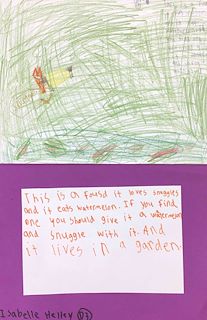 This is a fousd it loves snuggles
and it eats watermelon. If you find
one you should give it a watermelon
and snuggle with it. And
it lives in a garden.
Isabelle Helley